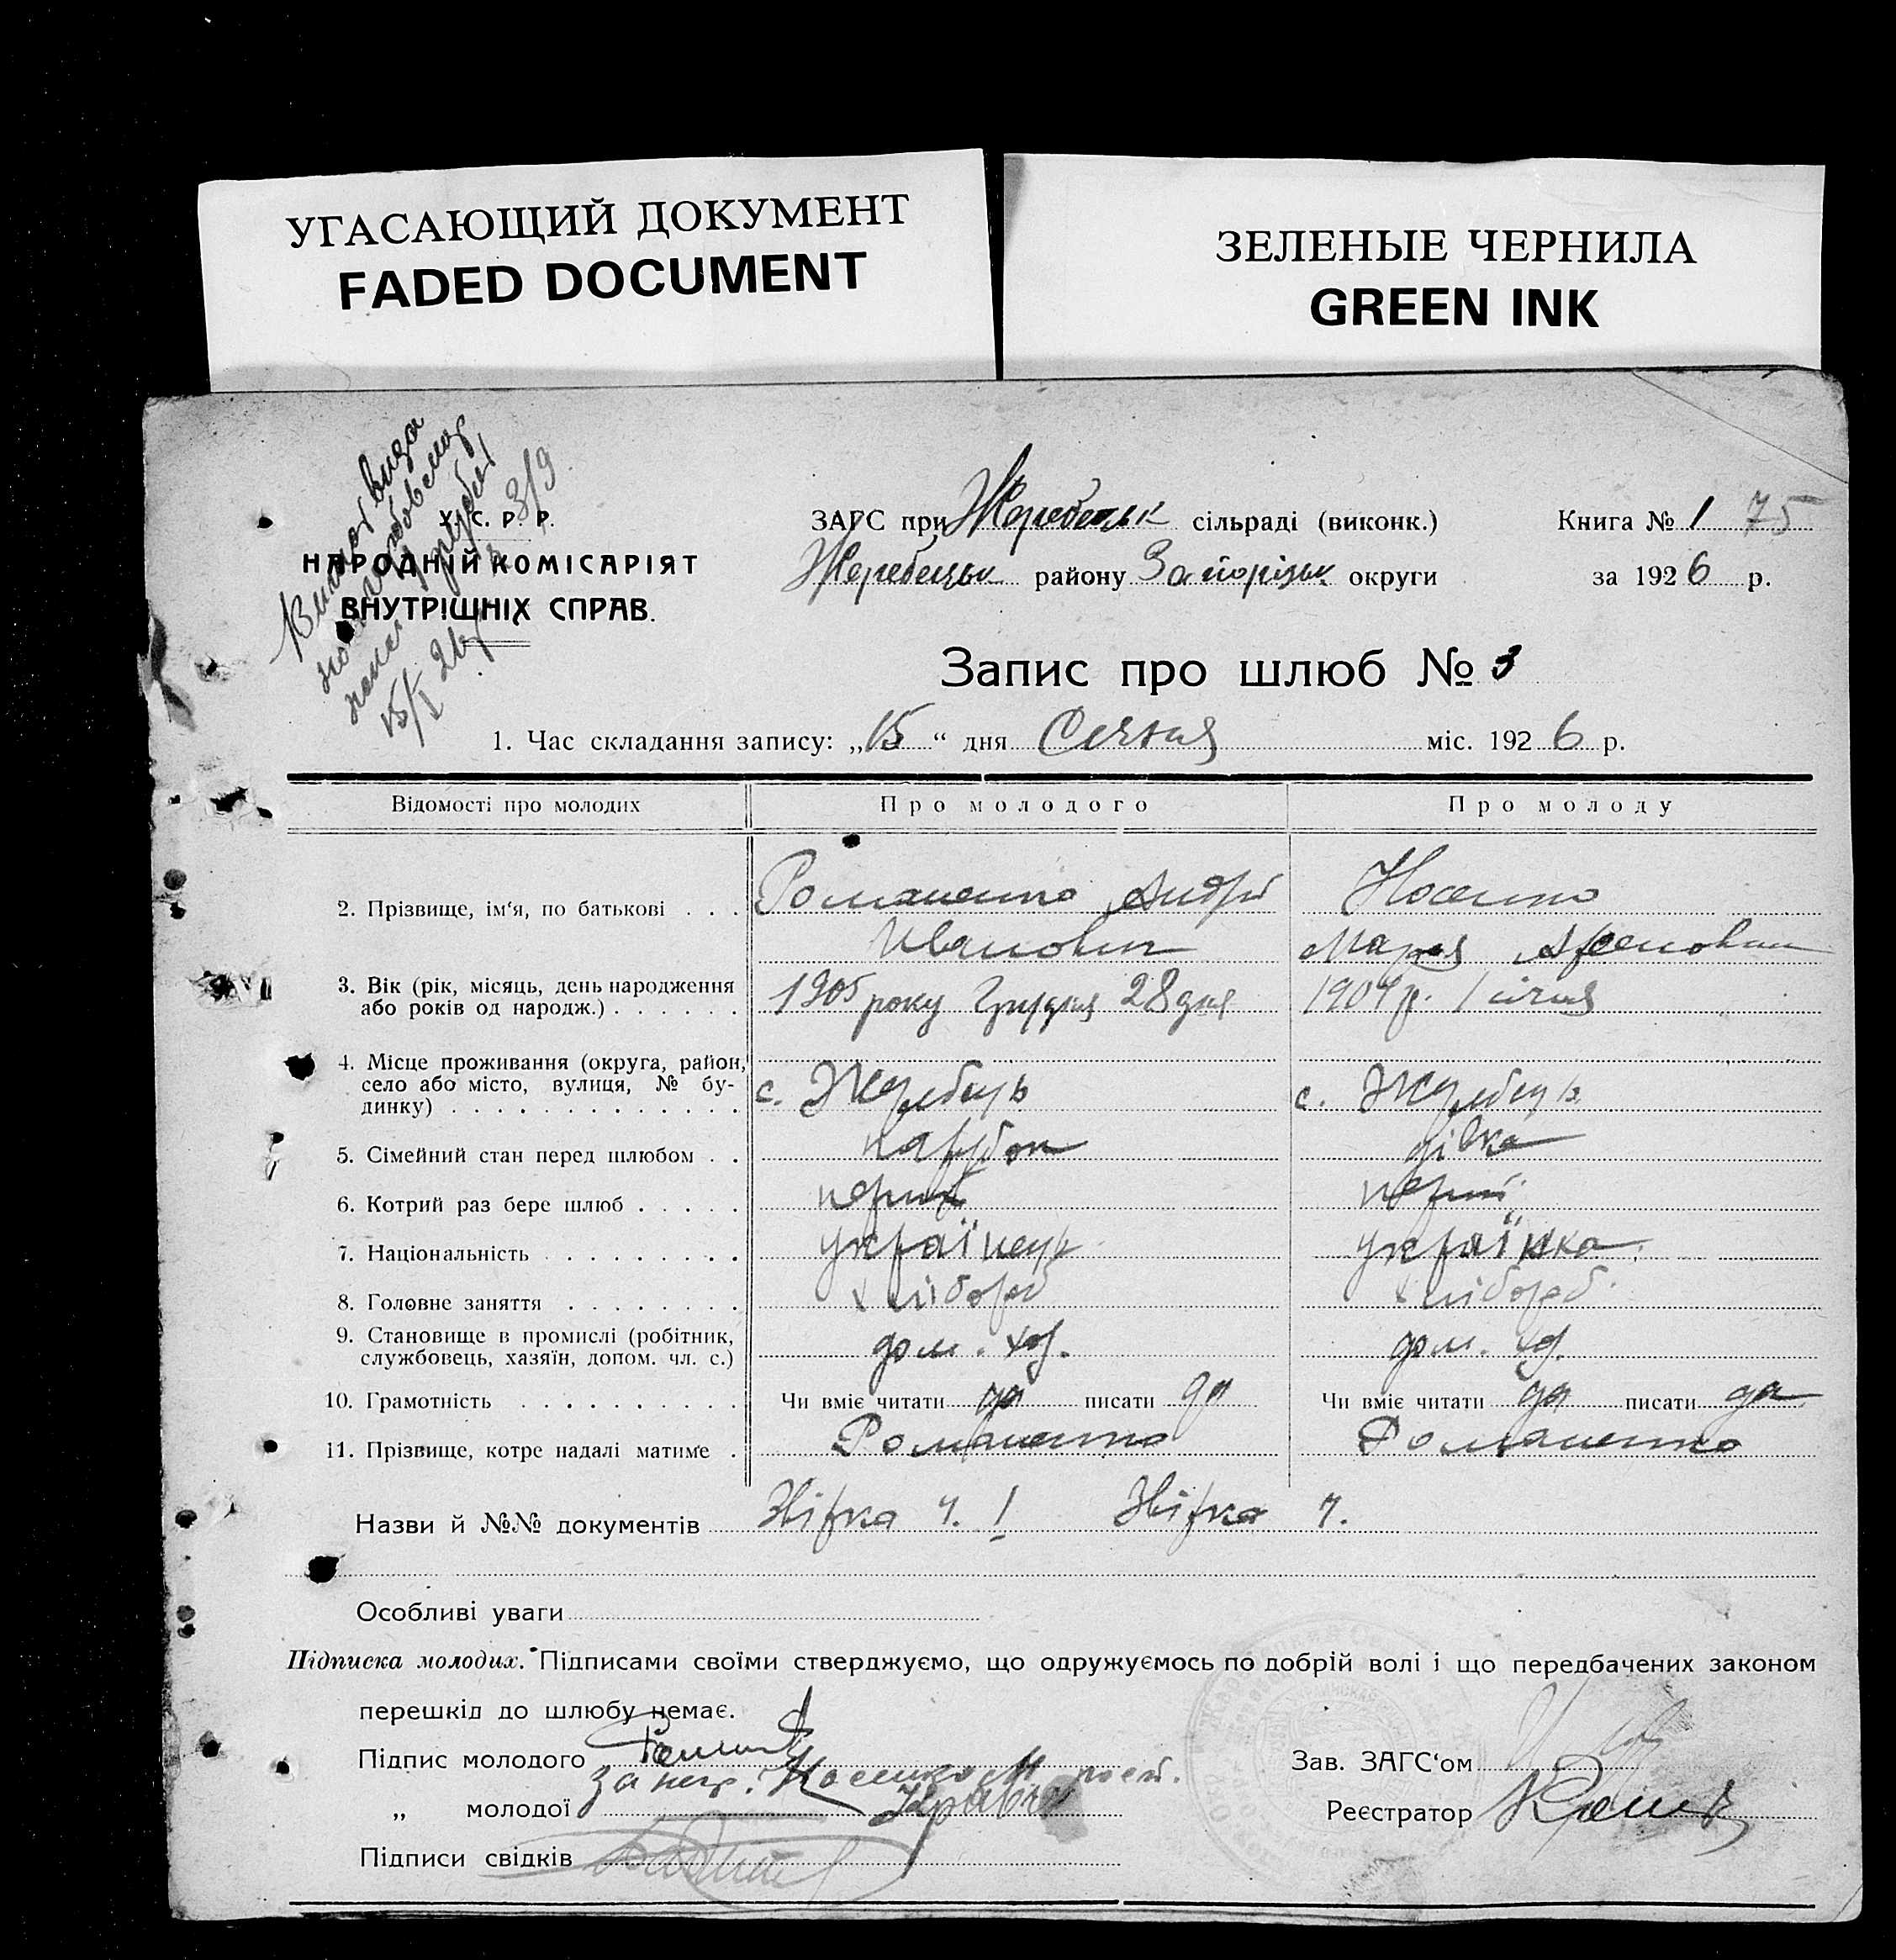 УГАСАЮЩИЙ ДОКУМЕНТ
FADED DOCUMENT
ЗЕЛЕНЫЕ ЧЕРНИЛА
GREEN INK
У. С. Р. Р.
НАРОДНІЙ КОМІСАРІЯТ
ВНУТРІШНІХ СПРАВ.
15/I 26
ЗАГС при Жеребецьк сільраді (виконк.)
Жеребецьк району Запоріжк округи
Книга № 1 75
за 1926 р.
Запис про шлюб № 3
1. Час складання запису: „15“ дня Січня міс. 1926 р.
Відомості про молодих Про молодого Про молоду
2. Прізвище, ім‘я, по батькові . . . Романенко Андрій Носенко
Иванович Мария
3. Вік (рік, місяць, день народження
або років од народж.) . . . . . . 1905 року Грудня 28 дня 1904 р. 1 січня
4. Місце проживання (округа, район,
село або місто, вулиця, № бу- с. Жеребець с. Жеребець
динку) . . . . . . . . . . . . .
5. Сімейний стан перед шлюбом . . парубок дівка
6. Котрий раз бере шлюб . . . . . перший перший
7. Національність . . . . . . . . . українець українка
8. Головне заняття . . . . . . . . хлібороб хлібороб
9. Становище в промислі (робітник,
службовець, хазяїн, допом. чл. с.) дом. хоз. дом. хоз.
10. Грамотність . . . . . . . . . . Чи вміє читати да писати да Чи вміє читати да писати да
11. Прізвище, котре надалі матиме . Романенко Романенко
Назви й №№ документів Звірка ч. 1 Звірка ч.
Особливі уваги
Підписка молодих. Підписами своїми стверджуємо, що одружуємось по добрій волі і що передбачених законом
перешкід до шлюбу немає.
Підпис молодого
„ молодої
Підписи свідків
Зав. ЗАГС‘ом
Реєстратор